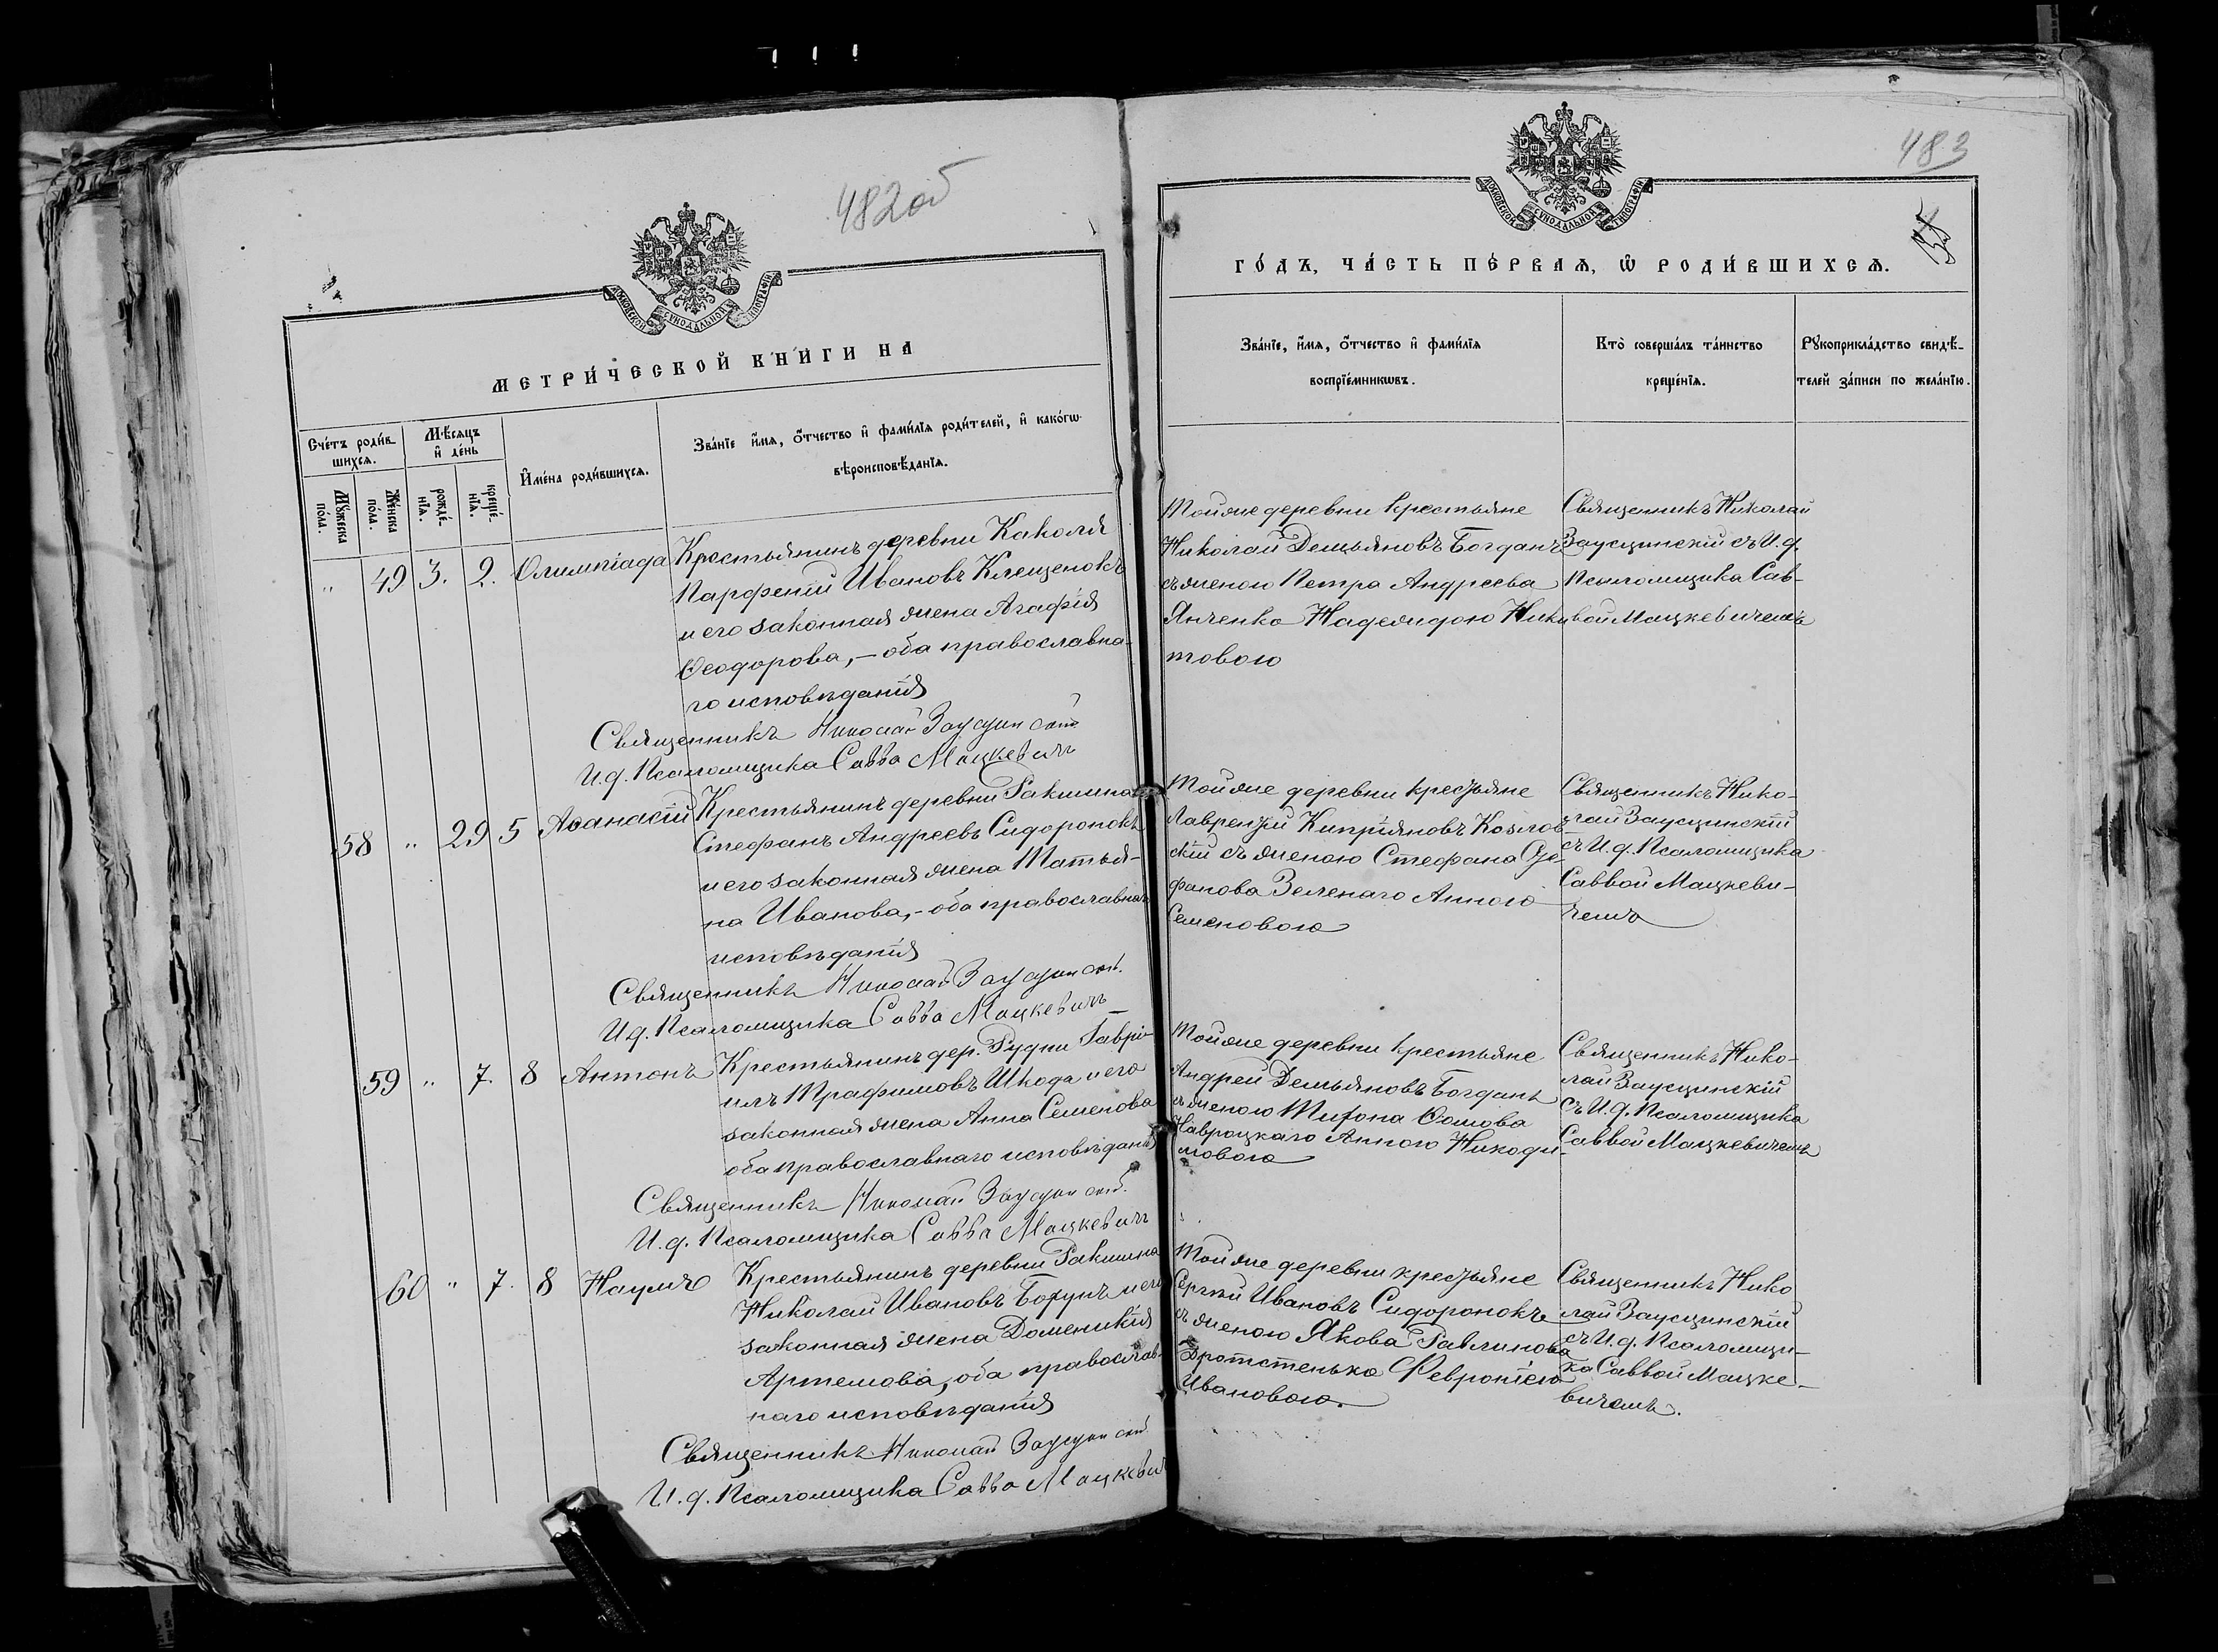 482об
МОСКОВСКОЙ СѴНОДАЛЬНОЙ ТИПОГРАФІИ
МЕТРИ́ЧЕСКОЙ КНИ́ГИ НА
Сче́тъ роди́в-
шихсѧ.
Мѣ́сѧцъ
и҆ де́нь
Мꙋ́жеска
по́ла.
Же́нска
по́ла.
рожде́-
нїѧ.
креще́-
нїѧ.
И҆мена̀ роди́вшихсѧ.
Зва́нїе и҆́мѧ, ѻ҆́тчество и҆ фами́лїѧ роди́телей, и҆ како́гѡ
вѣроисповѣ́данїѧ.
" 49 3. 9. Олимпіада Крестьянинъ деревни Каколя
Парфеній Ивановъ Клещенокъ
и его законная жена Агафія
Ѳеодорова, – оба православна-
го исповѣданія
Священникъ Николай Заусцинскій
И.д. Псаломщика Савва Мацкевичъ
58 " 29 5 Аѳанасій Крестьянинъ деревни Ракшина
Стефанъ Андреевъ Сидоронокъ
и его законная жена Татья-
на Иванова, – оба православнаго
исповѣданія
Священникъ Николай Заусцинскій
И.д. Псаломщика Савва Мацкевичъ
59 " 7. 8 Антонъ Крестьянинъ дер. Рудни Гаврі-
илъ Трафимовъ Шкода и его
законная жена Анна Семенова
оба православнаго исповѣданія
Священникъ Николай Заусцинскій
И.д. Псаломщика Савва Мацкевичъ
60 " 7. 8 Наумъ Крестьянинъ деревни Ракшина
Николай Ивановъ Борунъ и его
законная жена Доменикія
Артемова, оба православ-
наго исповѣданія
Священникъ Николай Заусцинскій
И.д. Псаломщика Савва Мацкевичъ
483
МОСКОВСКОЙ СѴНОДАЛЬНОЙ ТИПОГРАФІИ
ГО́ДЪ, ЧА́СТЬ ПЕ́РВАѦ, Ѡ҆ РОДИ́ВШИХСѦ.
Зва́нїе, и҆́мѧ, ѻ҆́тчество и҆ фами́лїѧ
воспрїе́мникѡвъ.
Кто̀ соверша́лъ та́инство
креще́нїѧ.
Рꙋкоприкла́дство свидѣ́-
телей за́писи по жела́нїю.
Той же деревни крестьяне
Николай Демьяновъ Богданъ
съ женою Петра Андреева
Янченко Надеждою Ники-
товою
Священникъ Николай
Заусцинскій съ И.д.
Псаломщика Сав-
вой Мацкевичемъ
Той же деревни крестьяне
Лаврентій Кипріяновъ Козлов-
скій съ женою Стефана Сте-
фанова Зеленаго Анною
Семеновою
Священникъ Нико-
лай Заусцинскій
съ И.д. Псаломщика
Саввой Мацкеви-
чемъ
Той же деревни крестьяне
Андрей Демьяновъ Богданъ
съ женою Тихона Ѳомова
Навроцкаго Анною Никоди-
мовою
Священникъ Нико-
лай Заусцинскій
съ И.д. Псаломщика
Саввой Мацкевичемъ
Той же деревни крестьяне
Сергій Ивановъ Сидоронокъ
съ женою Якова Павлинова
Протстенька Февроніею
Ивановою.
Священникъ Нико
лай Заусцинскій
съ И.д. Псаломщи-
ка Саввой Мацке-
вичемъ.